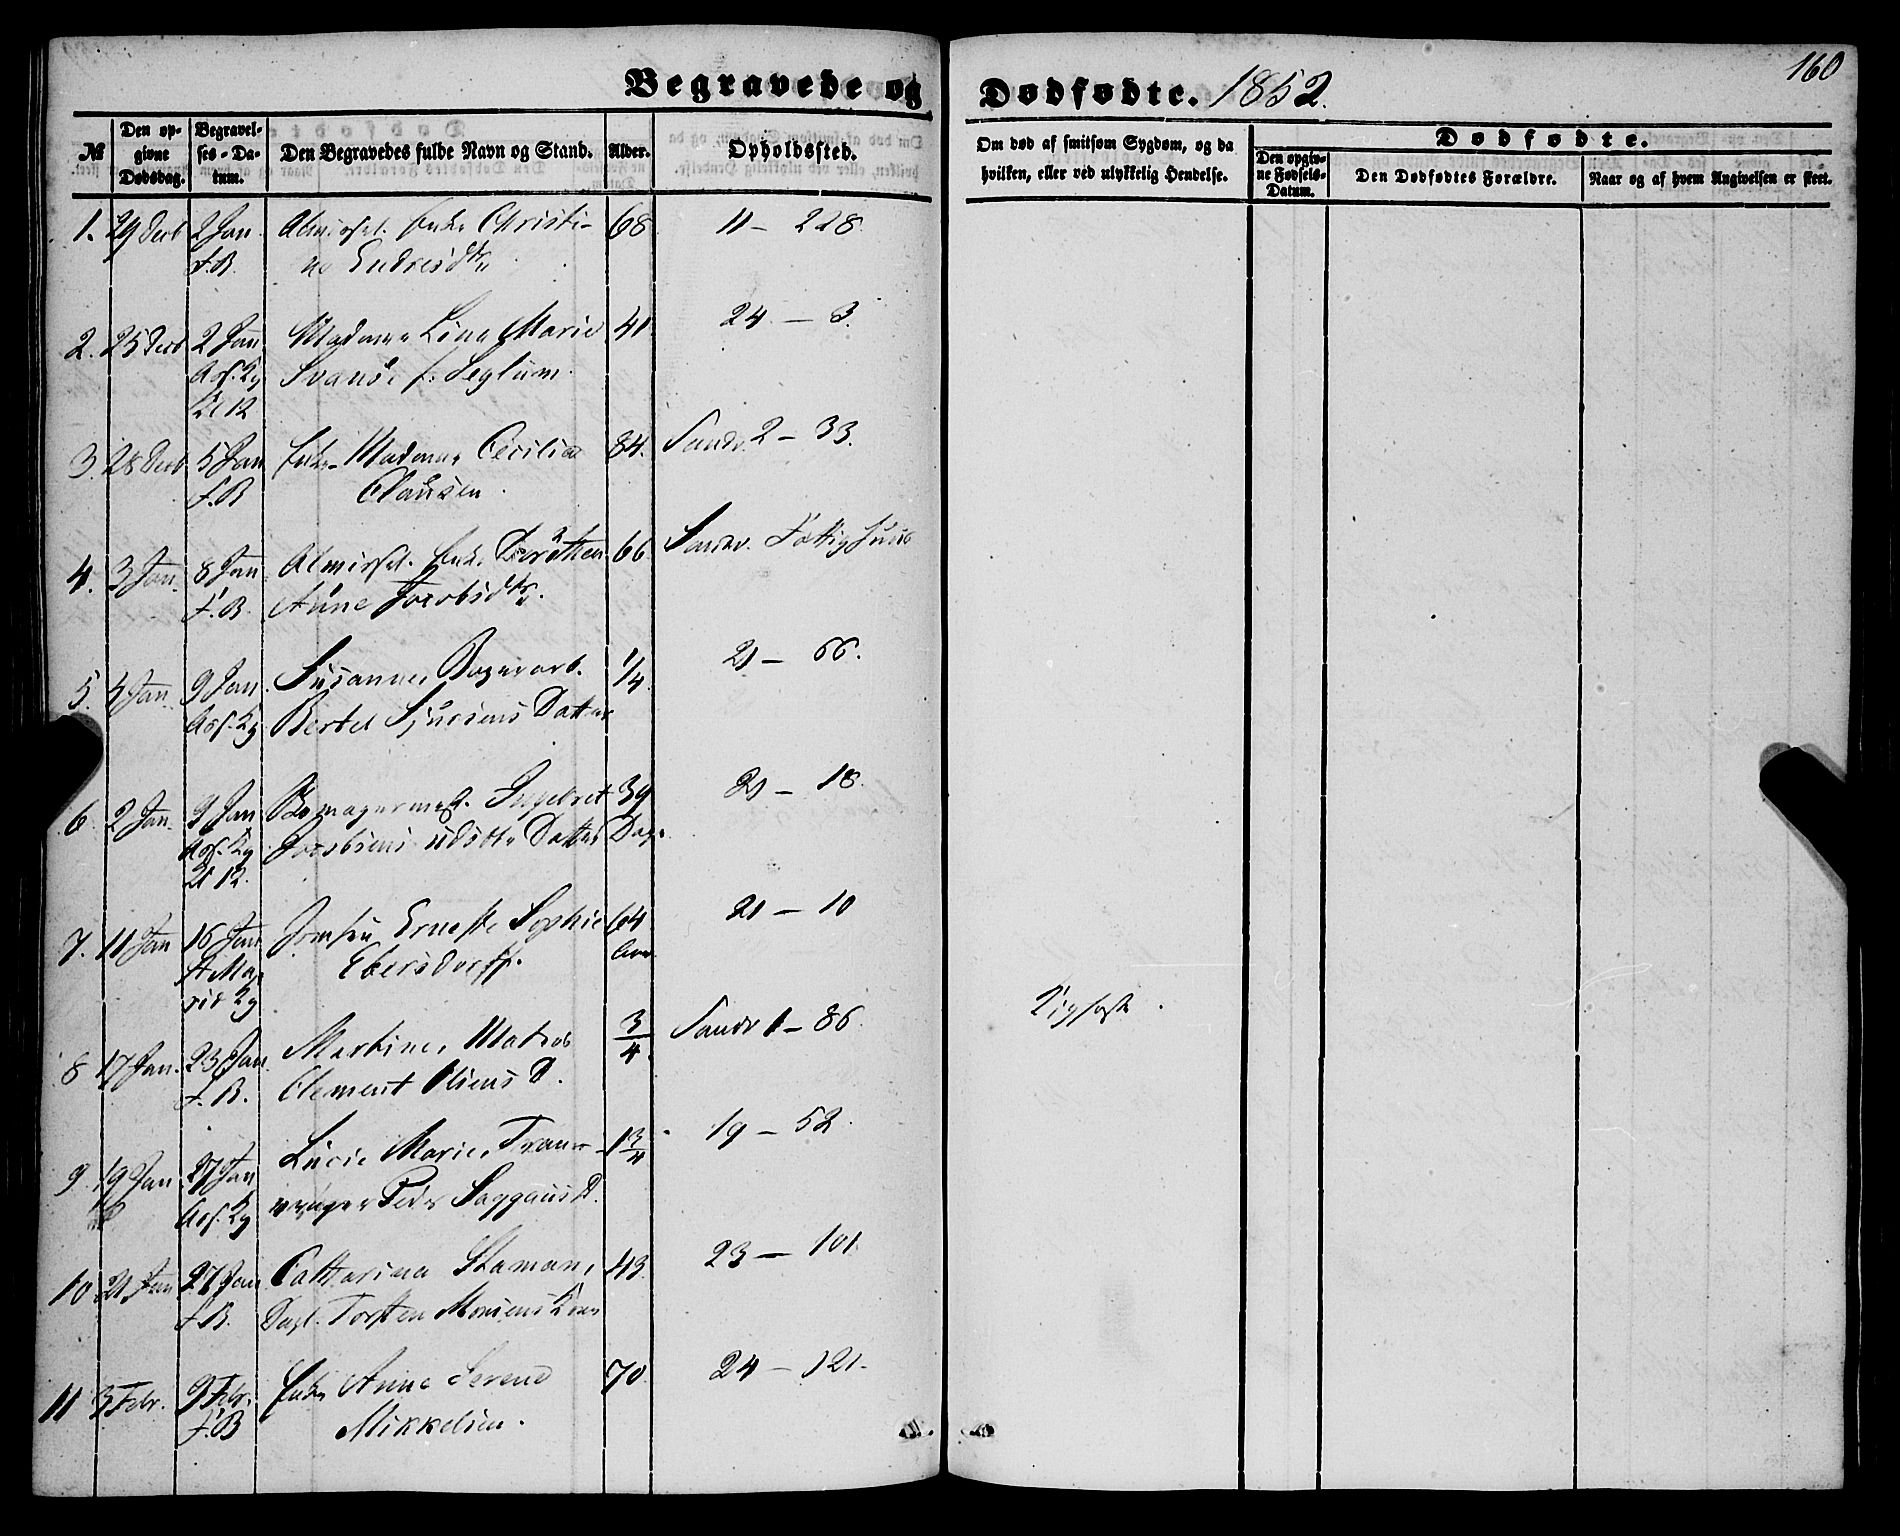 160
Begravede og Dødfødte. 1852.
№
Den opgivne Dødsdag.
Begravelses-Datum.
Den Begravedes fulde Navn og Stand.
Alder.
Opholdssted.
Om død af smitsom Sygdom, og da hvilken, eller ved ulykkelig Hendelse.
Dødfødte.
Den opgivne Fødsels-Datum.
Den Dødfødtes Forældre.
Naar og af hvem Angivelsen er skeet.
1. 29 Decb 2 Jan Almissel. Enke Christi- 68 11 - 228.
F.B. ne Endresdtr
2. 25 Decb 2 Jan Madame Lina Marie 41 24 - 3.
Asf. Kg Svansø f. Seglum.
Kl 12
3. 28 Decb 5 Jan Enke Madame Cecilia 84. Sandv. 2 - 33.
F.B Clausen.
4. 3 Jan. 8 Jan Almissel. Enke Dorothea 66 Sandv. Fattighuus
F.B. Anne Jacobsdtr.
5. 4 Jan. 9 Jan. Susanne, 1/4 21 - 66.
Asf. Kg Bertel Sjursens Datter
6 2 Jan. 9 Jan Ingebret 39 21 - 18.
Asf. Kg Jacobsens udøbte Datter Dage
Kl 12.
7. 11 Jan 16 Jan Jomfru Erneste Sophie 64 21 - 10
St Ma- Ebersdorff. Aar.
rie Kg
8 17 Jan. 23 Jan. Martine, Matros 3/4 Sandv 1 - 86.
F.B. Clement Olsens D.
9 19 Jan 27 Jan Lucie Marie, Tran- 1 3/4 19 - 52.
Asf. Kg vrager Peder Saggaus D.
10 21 Jan 27 Jan Catharina Staman, 43. 23 - 101.
F.B. Dagl. Torsten Monsens Kone
11 3 Febr. 9 Febr. Enke Anne Serene 70 24 - 121.
F.B Mikkelsen.